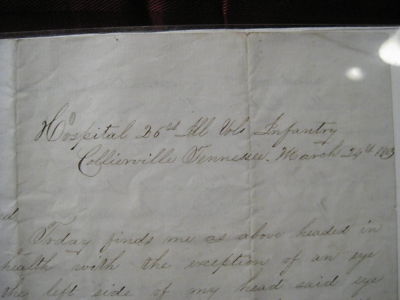 Hospital 26th Ill Vols Infantry
Collierville Tennessee. March 24th 1863
d
Today finds me as above headed in
health with the exception of an eye
the left side of my head said eye